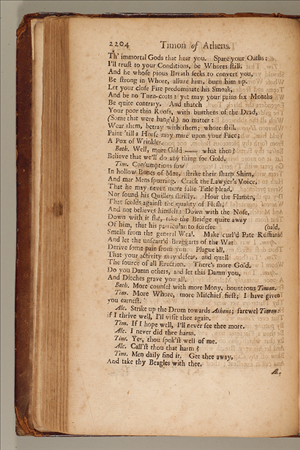 2204 Timon of Athens.
Th' immortal Gods that hear you. Spare your Oaths:
I'll trust to your Conditions, be Whores still.
And he whose pious Breath seeks to convert you,
Be strong in Whore, allure him, burn him up.
Let your close Fire predominate his Smoak,
And be no Turn-coats: yet may your pains six Months
Be quite contrary. And thatch
Your poor thin Roofs, with burthens of the Dead,
(Some that were hang'd) no matter:
Wear them, betray with them; whore still,
Paint 'till a Horse may mire upon your Face;
A Pox of Wrinkles.
Both. Well, more Gold —— what then?
Believe that we'll do any thing for Gold.
Tim. Consumptions sow
In hollow Bones of Man, strike their sharp Shins,
And mar Mens spurring. Crack the Lawyer's Voice,
That he may never more false Title plead,
Nor sound his Quillets shrilly. Hoar the Flamen,
That scolds against the quality of Flesh,
And not believes himself: Down with the Nose,
Down with it flat, take the Bridge quite away
Of him, that his particular to foresee (bald,
Smells from the general Weal. Make curl'd Pate Ruffians
And let the unscarr'd Braggarts of the War
Derive some pain from you. Plague all,
That your activity may defeat, and quell
The source of all Erection. There's more Gold.
Do you Damn others, and let this Damn you,
And Ditches grave you all.
Both. More counsel with more Mony, bounteous Timon.
Tim. More Whore, more Mischief first; I have given
you earnest.
Alc. Strike up the Drum towards Athens; farewel Timon:
if I thrive well, I'll visit thee again.
Tim. If I hope well, I'll never see thee more.
Alc. I never did thee harm.
Tim. Yes, thou spok'st well of me.
Alc. Call'st thou that harm?
Tim. Men daily find it. Get thee away,
And take thy Beagles with thee.
Alc.